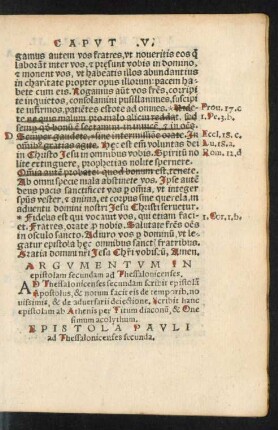 CAPVT .V.
gamus autem vos fratres, vt noueritis eos q̃
laborãt inter vos, & presunt vobis in domino,
& monent vos, vt habeatis illos abundantius
in charitate propter opus illorum: pacem ha-
bete cum eis. Rogamus aũt vos fr̃es, corripi-
te inquietos, consolamini pusillanimes, suscipi-
te infirmos, patiẽtes estote ad omnes. Vide-
te ne quis malum pro malo alicui reddat, sed
semp qd̃ bonũ ẽ sectamini in inuicẽ, & in oẽs.
Semper gaudete, sine intermissione orate, In
omnibus gratias agite. Hec est eni voluntas dei
in Christo Iesu in omnibus vobis. Spiritũ no
lite extinguere, prophetias nolite spernere.
Omnia autẽ probate: quod bonum est, tenete.
Ab omni specie mala abstinete vos. Ipse autẽ
deus pacis sanctificet vos p omnia, vt integer
spũs vester, & anima, et corpus sine querela, in
aduentu domini nostri Iesu Christi seruetur.
Fidelis est qui vocauit vos, qui etiam faci-
et. Fratres, orate p nobis. Salutate fr̃es oẽs
in osculo sancto. Adiuro vos p dominũ, vt le-
gatur epistola hec omnibus sanctis fratribus.
Gratia domini nr̃i Iesu Chr̃i vobiscũ, Amen.
ARGVMENTVM IN
epistolam secundam ad Thessalonicenses.
AD Thessalonicenses secundam scribit epistolã
Apostolus, & notum facit eis de temporib. no
uissimis, & de aduersarii deiectione. Scribit hanc
epistolam ab Athenis per Titum diaconũ, & One
simum acolythum.
EPISTOLA PAVLI
ad Thessalonicenses secunda.
Prou. 17. c
1. Pe. 3. b.
D
Eccl. 18. c.
Lu. 18. a.
Rom. 12. d
1. Cor. 1. b.